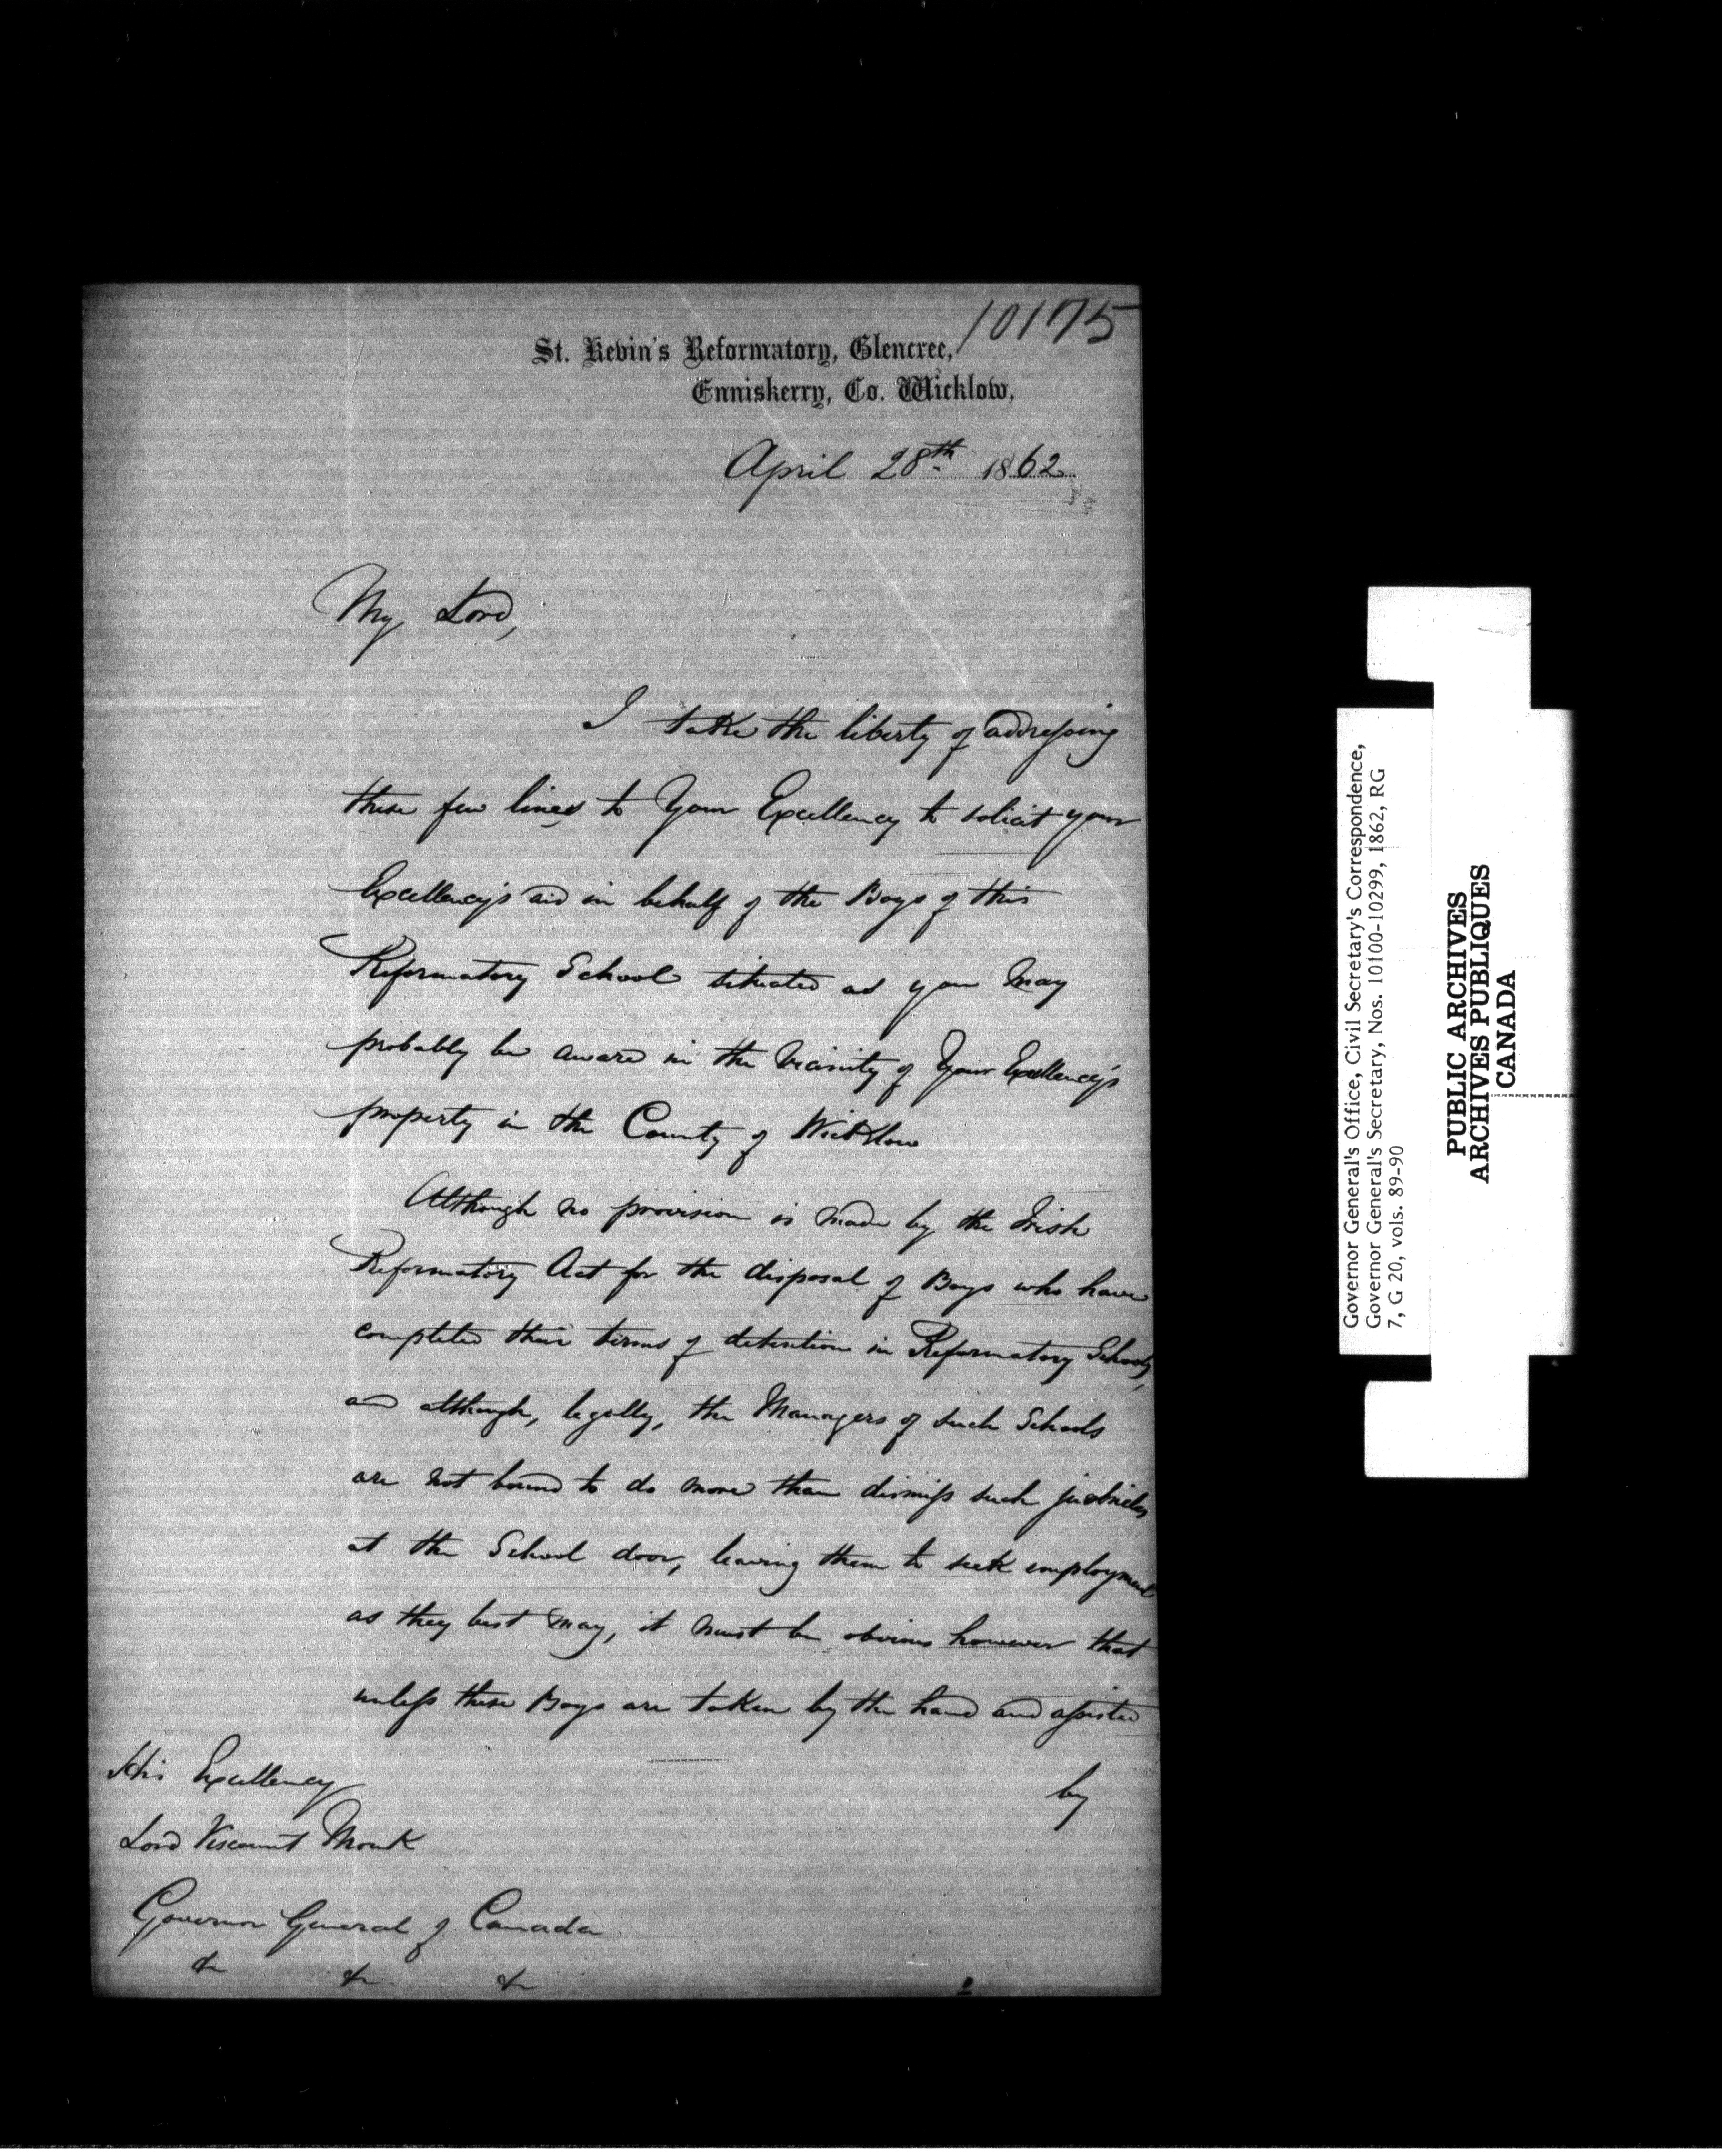 10175
St. Kevin's Reformatory, Glencree,
Enniskerry, Co. Wicklow,
April 28th 1862
My Lord,
I take the liberty of addressing
these few lines to Your Excellency to solicit your
Excellency's aid in behalf of the Boys of this
Reformatory School situated as you may
probably be aware in the vicinity of Your Excellency's
property in the County of Wicklow
Although no provision is made by the Irish
Reformatory Act for the disposal of Boys who have
completed their terms of detention in Reformatory Schools,
and although, legally, the Managers of such Schools
are not bound to do more than dismiss such juveniles
at the School door, leaving them to seek employment
as they best may, it must be obvious however that
unless these Boys are taken by the hand and assisted
by
His Excellency
Lord Viscount Monk
Governor General of Canada
&c &c &c
Governor General's Office, Civil Secretary's Correspondence,
Governor General's Secretary, Nos. 10100-10299, 1862, RG
7, G 20, vols. 89-90
PUBLIC ARCHIVES
ARCHIVES PUBLIQUES
CANADA